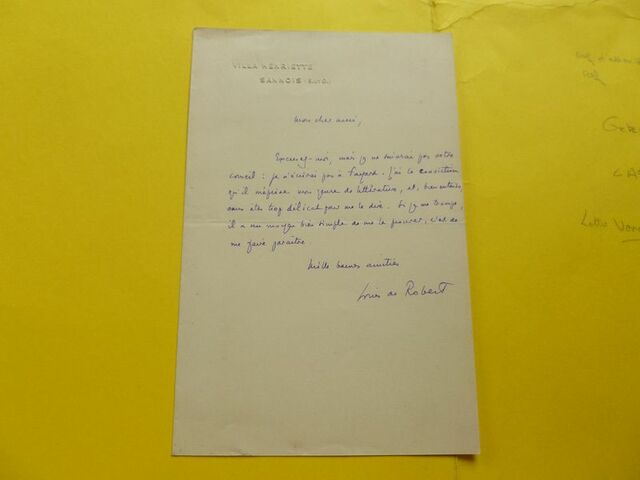 VILLA HENRIETTE
SANNOIS (S.&O.)
Mon cher ami,
Excusez-moi, mais je ne suivrai pas votre
conseil : je n'écrirai pas à Fayard. J'ai la conviction
qu'il méprise mon genre de littérature, et, bien entendu
vous êtes trop délicat pour me le dire. Si je me trompe,
il a un moyen bien simple de me le prouver, c'est de
me faire paraître
Mille bonnes amitiés
Louis de Robert
Lettre